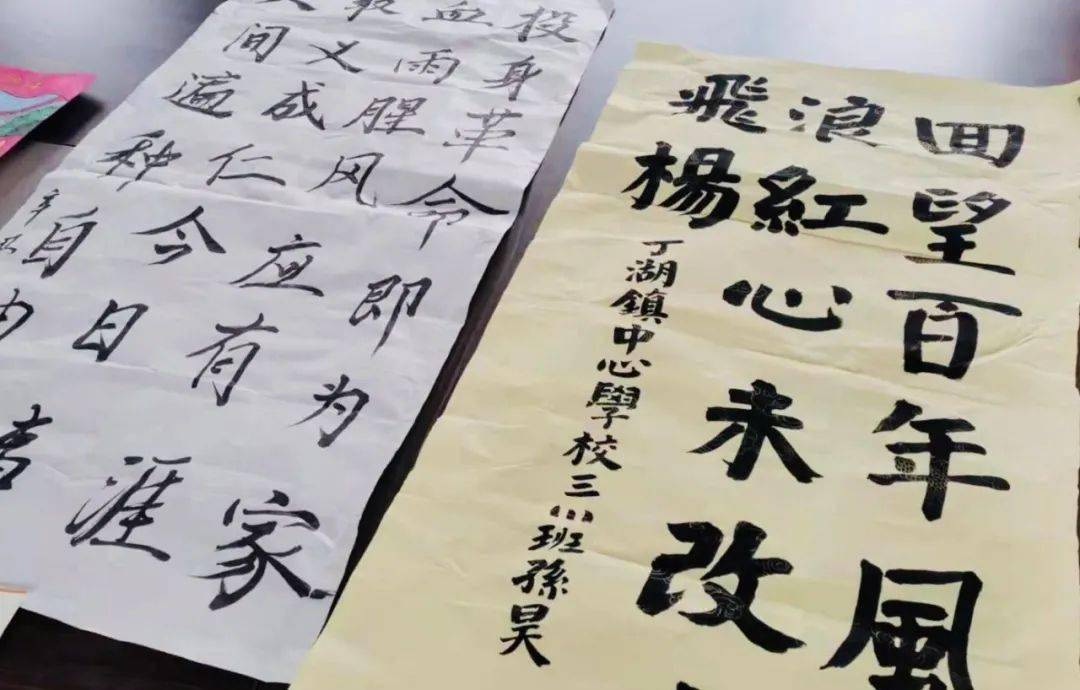 投身革命即为家
血雨腥风应有涯
取义成仁今日事
人间遍种自由
辛丑
回望百年風
浪紅心未改
飛楊
丁湖鎮中心學校三(1)班孫昊